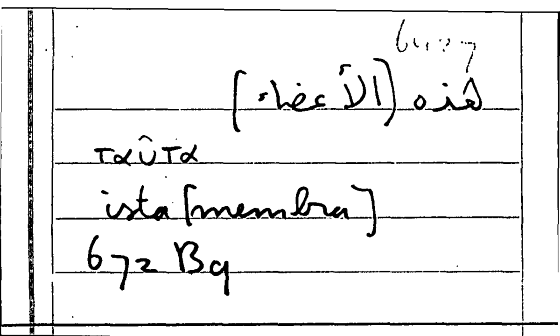 هذه [الأعضاء]
ταῦτα
ista [membra]
672 B9